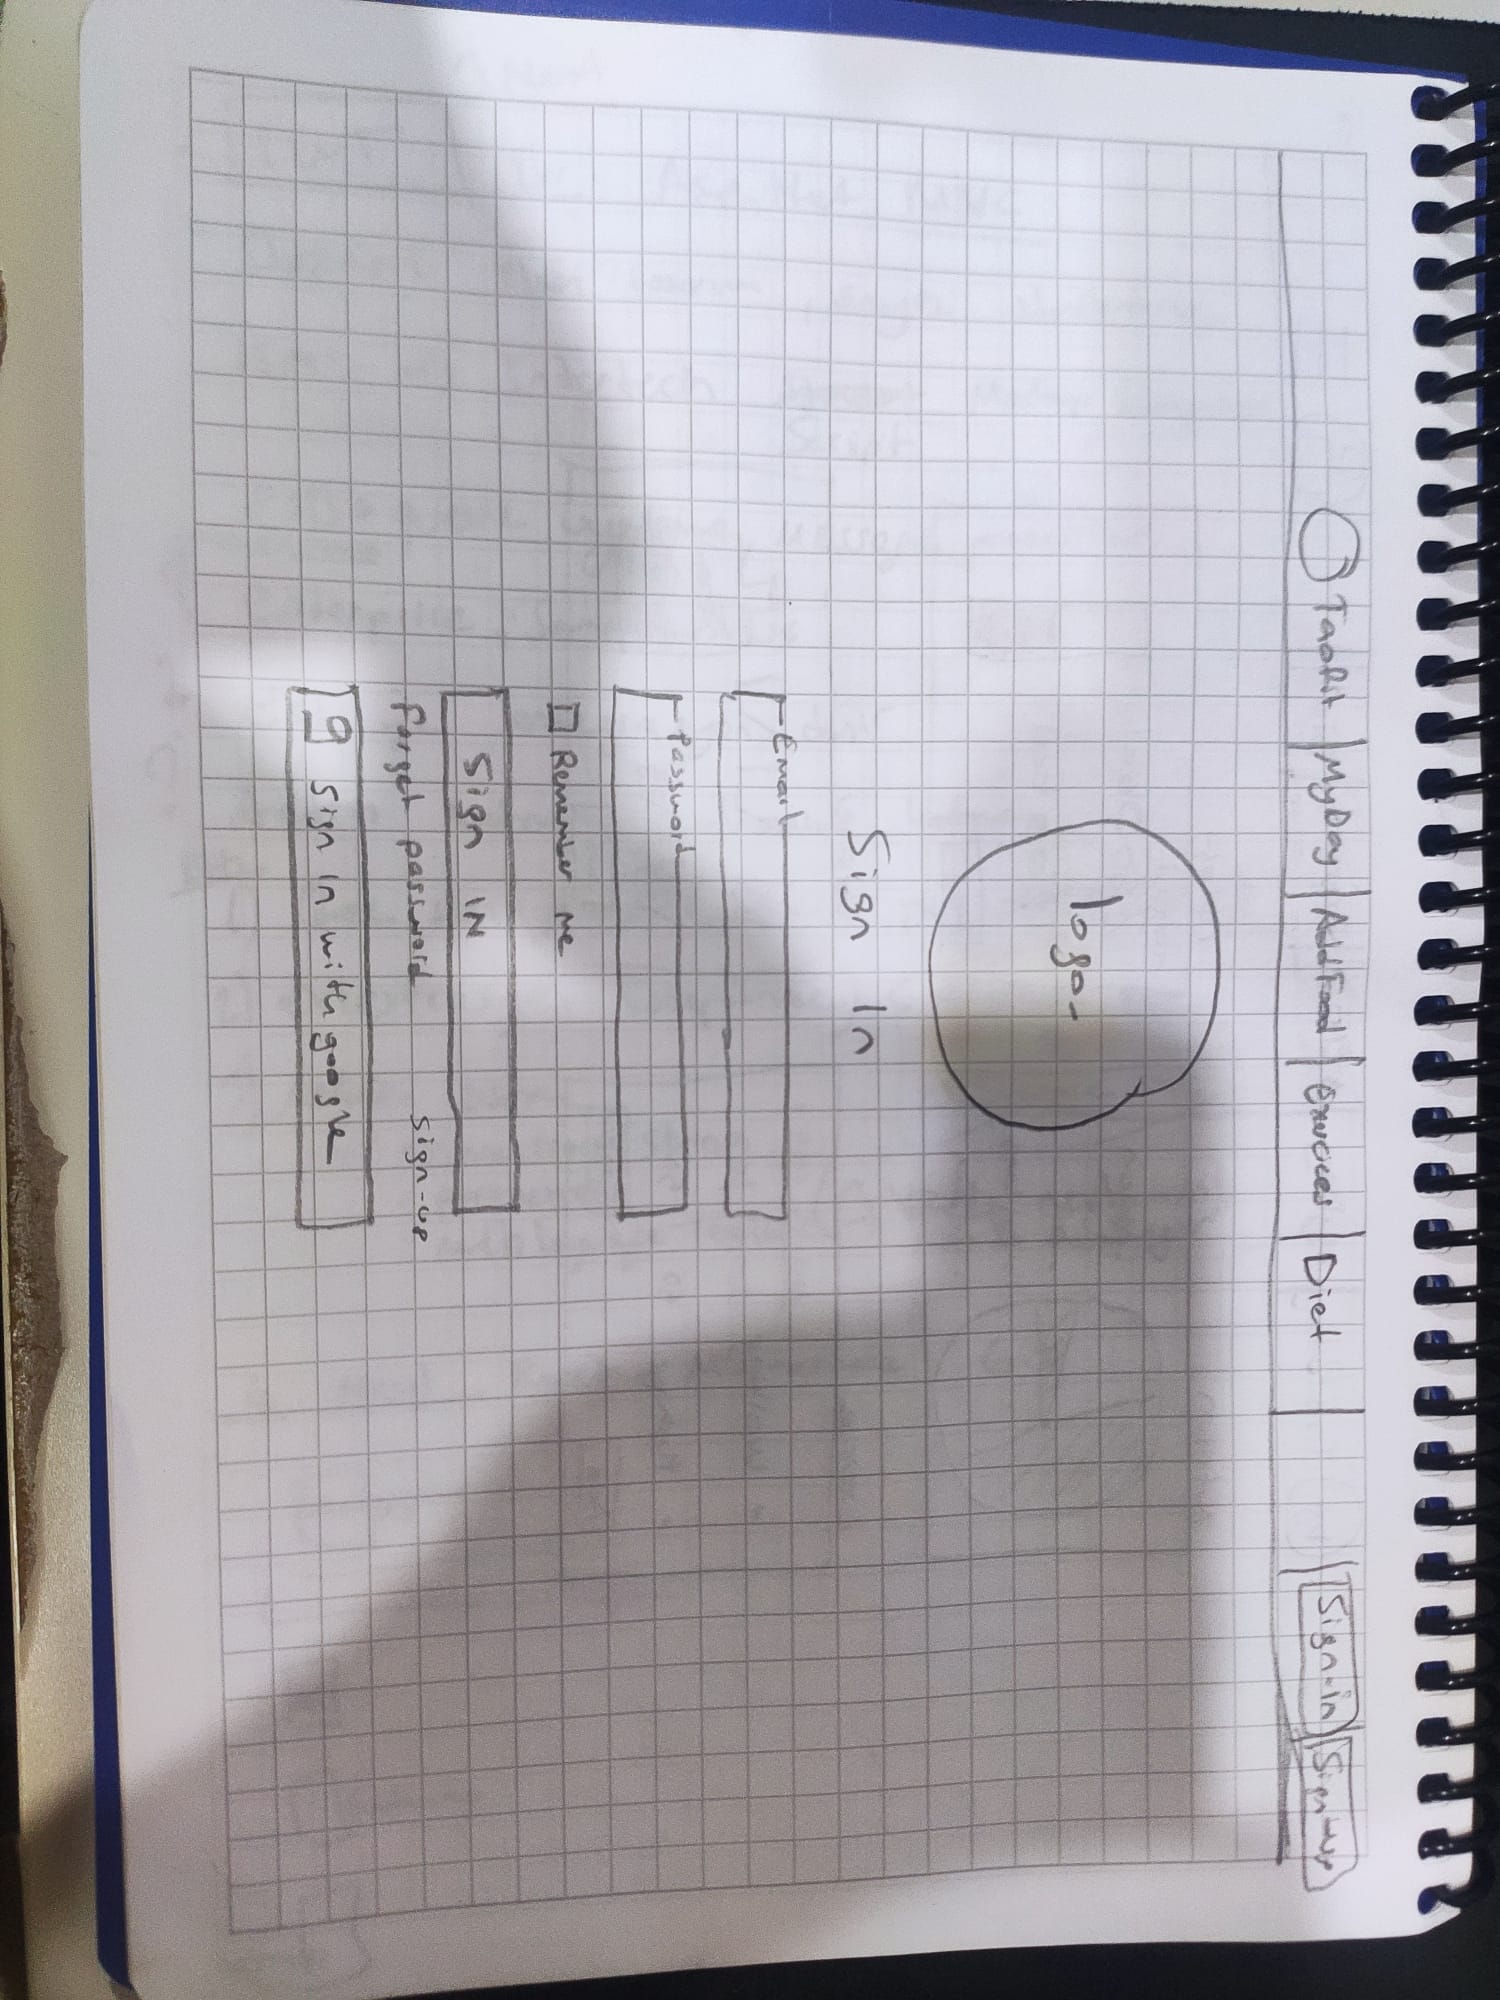 TaaFit | MyDay | Add Food | Exercices | Diet | Sign-in | Sign-up
logo
Sign In
Email
Password
Remember me
Sign IN
Forget password Sign-up
Sign in with google